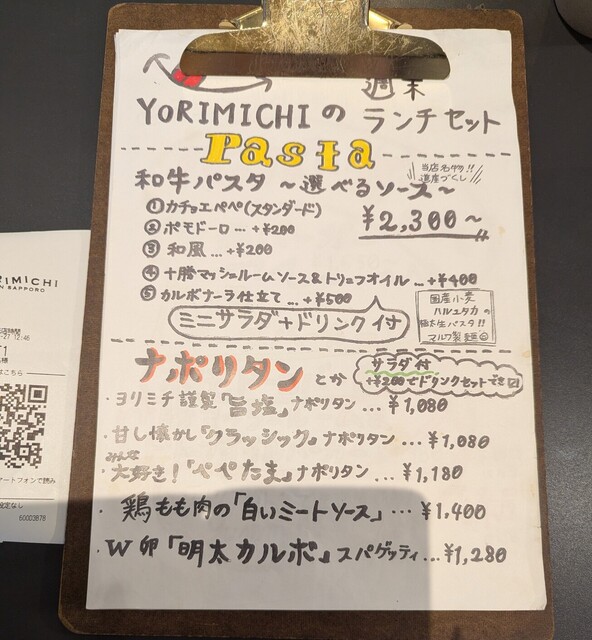 週末
YORIMICHIの ランチセット
Pasta
和牛パスタ 〜選べるソース〜
当店名物!!
道産づくし
¥2,300〜
①カチョエペペ(スタンダード)
②ポモドーロ…+¥200
③和風…+¥200
④十勝マッシュルームソース&トリュフオイル…+¥400
⑤カルボナーラ仕立て…+¥500
ミニサラダ+ドリンク付
国産小麦
ハルユタカの
極太生パスタ!!
マルワ製麺
ナポリタン とか
サラダ付
+¥200でドリンクセットでき
・ヨリミチ謹製「旨塩」ナポリタン…¥1,080
・甘し懐かし「クラッシック」ナポリタン…¥1,080
みんな
・大好き!「ペペたま」ナポリタン…¥1,180
・鶏もも肉の「白いミートソース」…¥1,400
・W卵「明太カルボ」スパゲッティ…¥1,280
RIMICHI
N SAPPORO
店時間
-27 12:46
T1
名様
はこちら
ートフォンで読み
設定なし
60003878